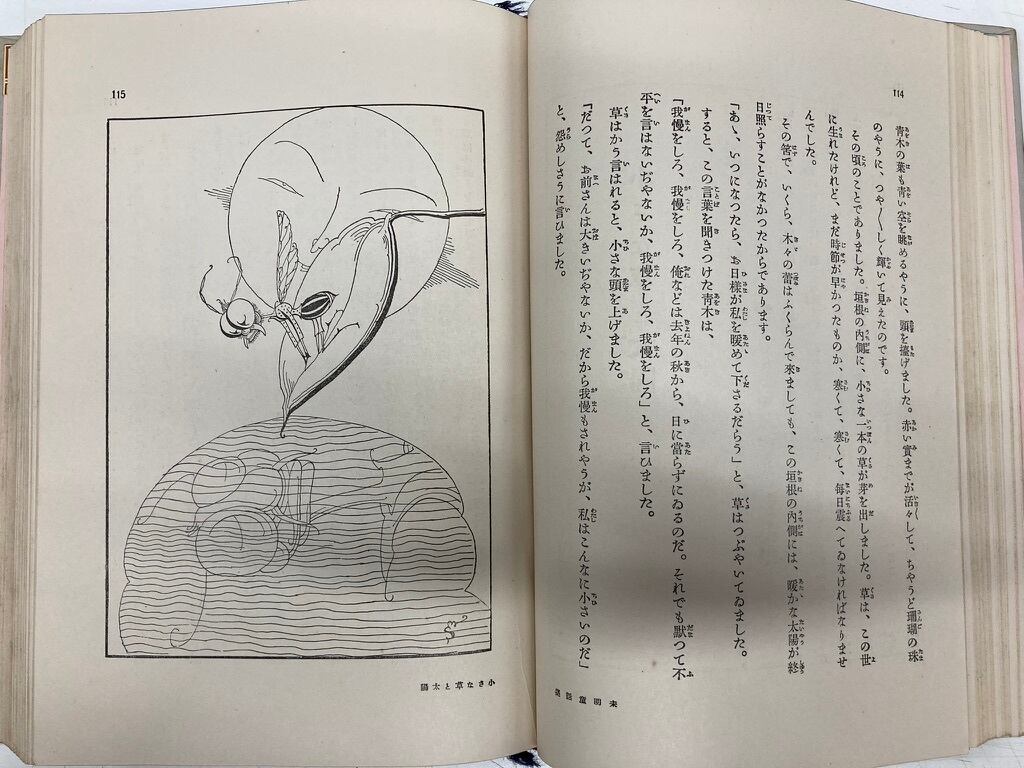 114
青木の葉も青い空を眺めるやうに、頭を擡げました。赤い實までが活々して、ちやうど珊瑚の珠
のやうに、つや〱しく輝いて見えたのです。
その頃のことでありました。垣根の內側に、小さな一本の草が芽を出しました。草は、この世
に生れたけれど、まだ時節が早かつたものか、寒くて、寒くて、每日震へてゐなければなりませ
んでした。
その筈で、いくら、木々の蕾はふくらんで來ましても、この垣根の內側には、暖かな太陽が終
日照らすことがなかつたからであります。
「あゝ、いつになつたら、お日樣が私を暖めて下さるだらう」と、草はつぶやいてゐました。
すると、この言葉を聞きつけた靑木は、
「我慢をしろ、我慢をしろ、俺などは去年の秋から、日に當らずにゐるのだ。それでも默つて不
平を言はないぢやないか、我慢をしろ、我慢をしろ」と、言ひました。
草はかう言はれると、小さな頭を上げました。
「だつて、お前さんは大きいぢやないか、だから我慢もされやうが、私はこんなに小さいのだ」
と、怨めしさうに言ひました。
未明童話集
115
小さな草と太陽